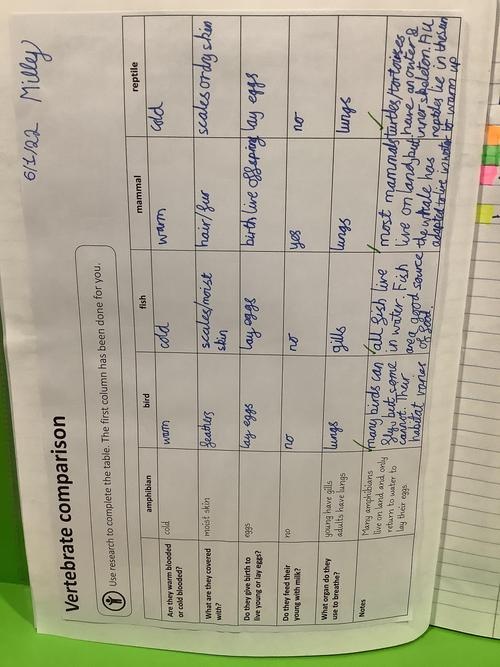 6/1/22 Milley
Vertebrate comparison
Use research to complete the table. The first column has been done for you.
amphibian bird fish mammal reptile
Are they warm blooded or cold blooded? cold warm cold warm cold
What are they covered with? moist skin feathers scales/moist skin hair/fur scales or dry skin
Do they give birth to live young or lay eggs? eggs lay eggs lay eggs birth live offspring lay eggs
Do they feed their young with milk? no no no yes no
What organ do they use to breathe? young have gills adults have lungs lungs gills lungs lungs
Notes
Many amphibians
live on land and only
return to water to
lay their eggs
many birds can
fly but some
cannot. Their
habitat varies
all fish live
in water. Fish
are a good source
of food.
most mammals
live on land but
the whale has
adapted to live in water
turtles/tortoises
have an outer &
inner skeleton. All
reptiles lie in the sun
to warm up